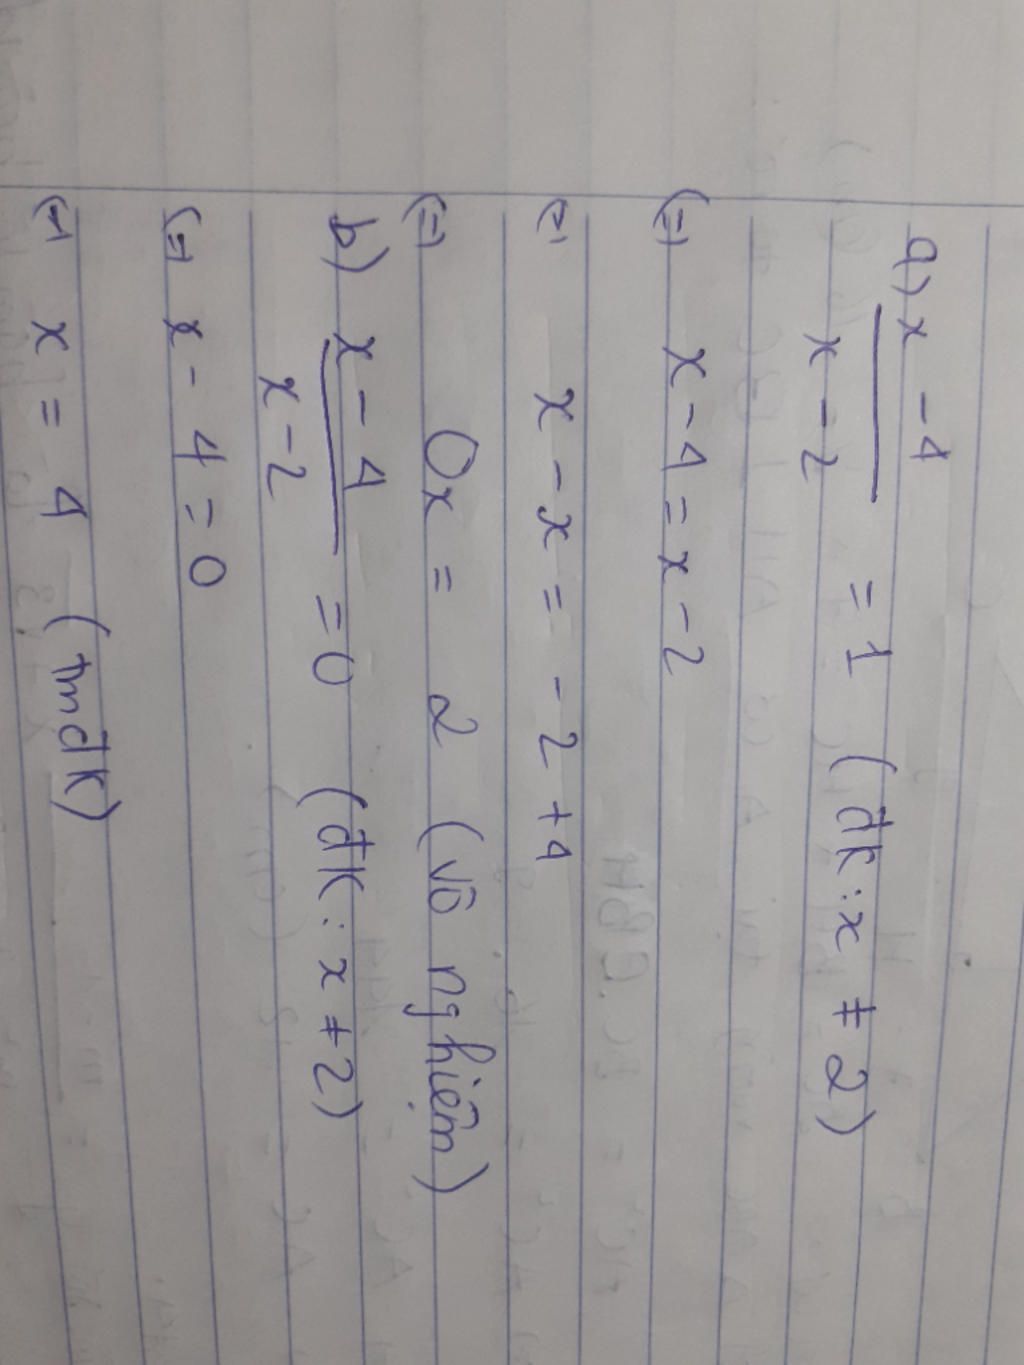 a) x - 4
x - 2 = 1 (đk: x ≠ 2)
(=) x - 4 = x - 2
(=) x - x = - 2 + 4
(=) 0x = 2 (vô nghiệm)
b) x - 4
x - 2 = 0 (đk: x ≠ 2)
(=) x - 4 = 0
(=) x = 4 (tmđk)